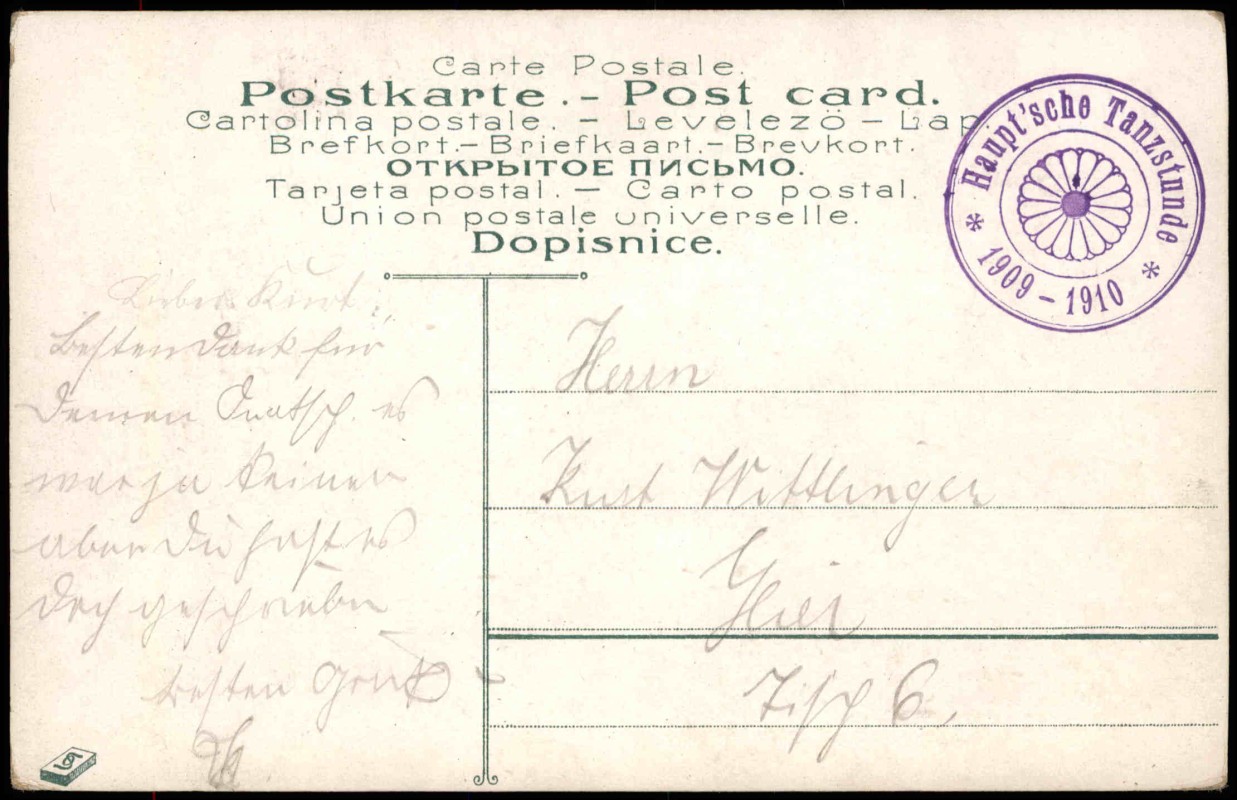 Carte Postale.
Postkarte.- Post card.
Cartolina postale. - Levelezö - Lap
Brefkort.- Briefkaart.- Brevkort.
ОТКРЫТОЕ ПИСЬМО.
Tarjeta postal. - Carto postal.
Union postale universelle.
Dopisnice.
Haupt'sche Tanzstunde
* 1909 - 1910 *
Lieber Kurt:
Besten Dank für
Deinen Quatsch. es
war ja keiner
aber Du hast es
doch geschrieben
besten Gruß
Herrn
Kurt Wittlinger
Hier
Tisch 6.